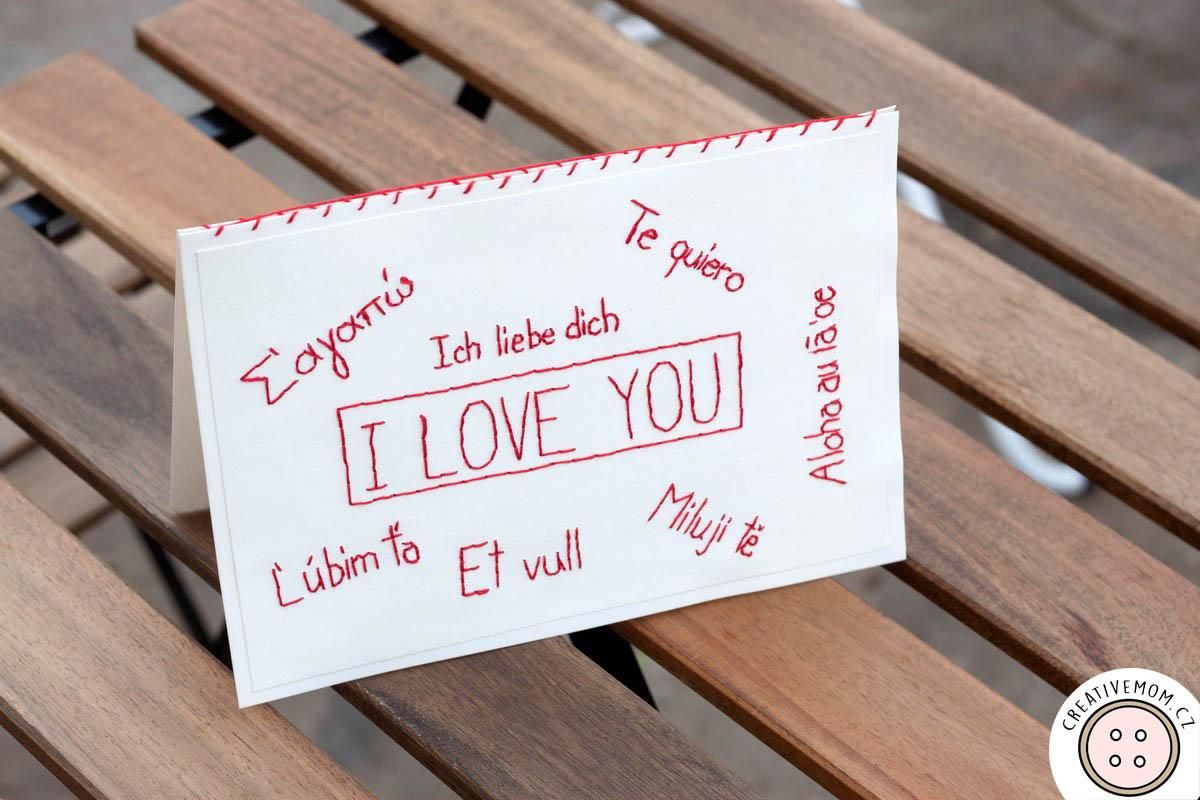 Te quiero
Σ'αγαπώ
Ich liebe dich
I LOVE YOU
Aloha au iā 'oe
Ľúbim ťa
Et vull
Miluji tě
CREATIVEMOM.CZ